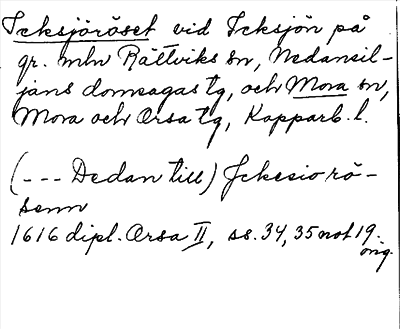 Icksjöröset vid Icksjön på
gr. mln Rättviks sn, Nedansil-
jans domsagas tg, och Mora sn,
Mora och Orsa tg, Kopparb. l.
(--- Dedan till) Jckesio rö-
senn
1616 dipl. Orsa II, ss. 34, 35 not 19.
orig.